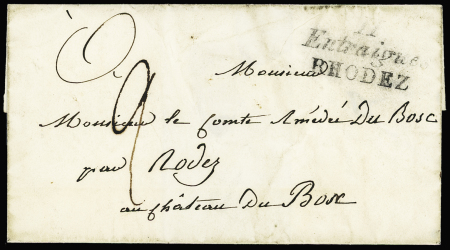 11
Entraigues
RHODEZ
Monsieur
2
Monsieur le Comte Amédée Du Bosc
par Rodez
au château Du Bosc